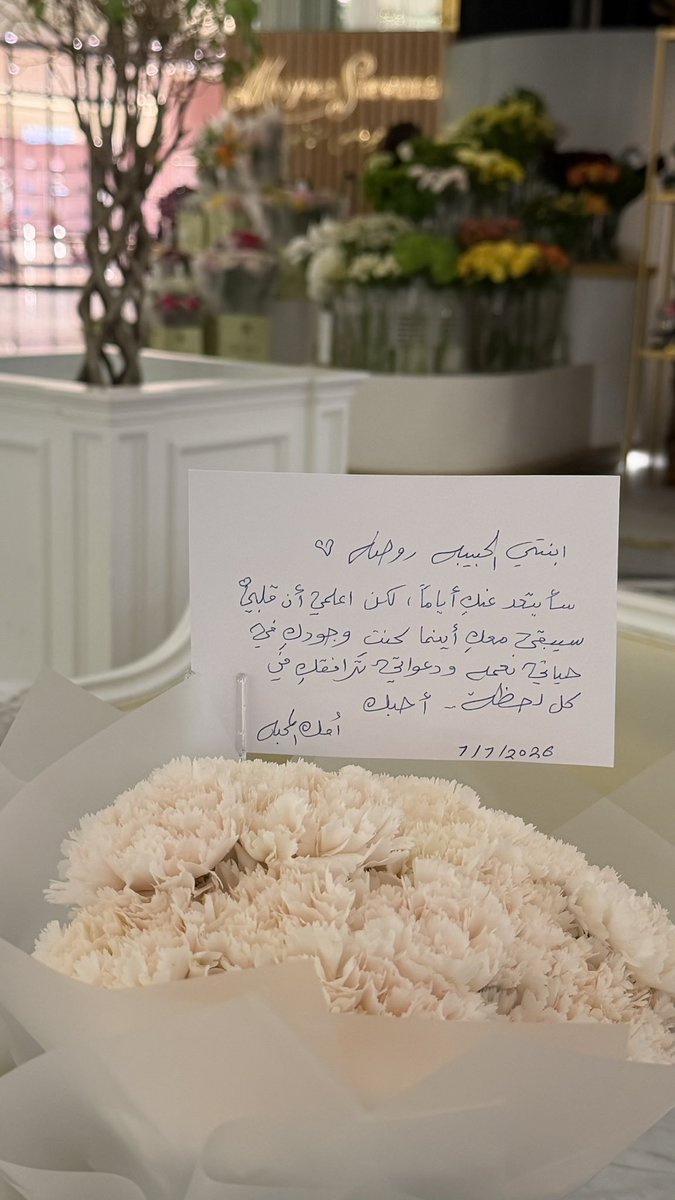 ابنتي الحبيبه روضه ♡
سأبتعد عنكِ أياماً، لكن اعلمي أن قلبي
سيبقى معكِ أينما كنت وجودكِ في
حياتي نعمه ودعواتي تُرافقكِ في
كل لحظة .. أحبك
أمك المحبه
7/7/2026